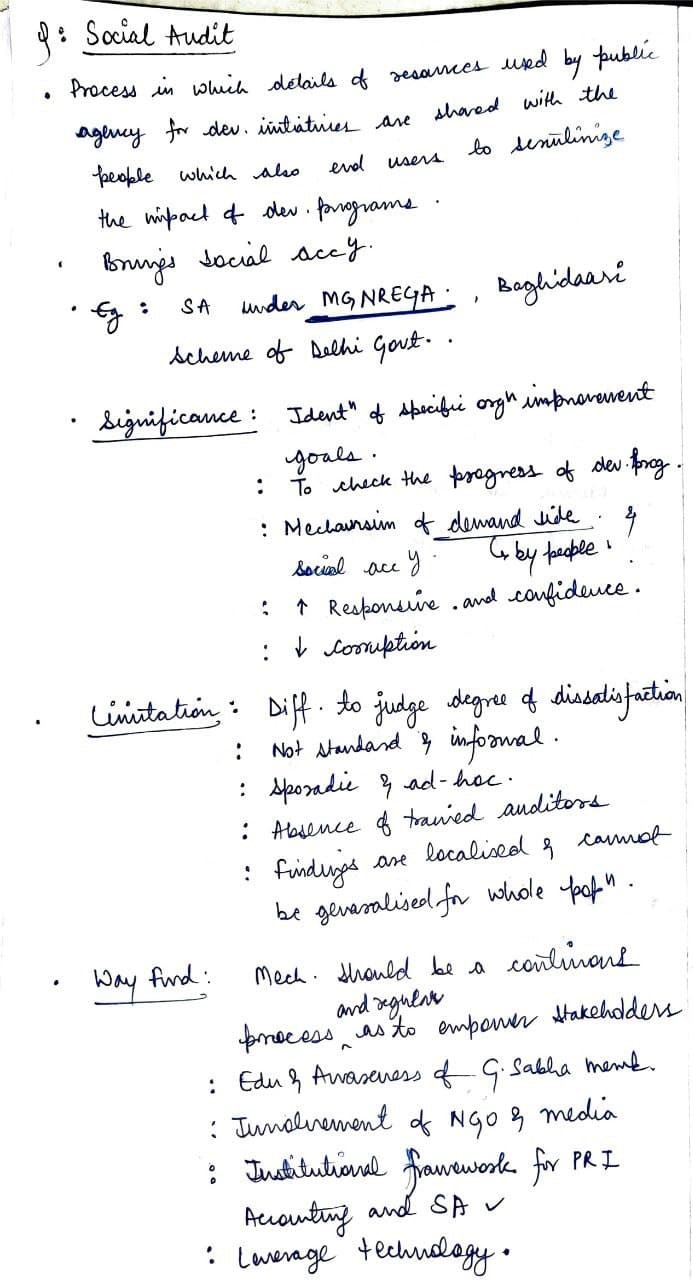 Q: Social Audit
• Process in which details of resources used by public
agency for dev. initiatives are shared with the
people which also end users to scrutinize
the impact of dev. programs.
• Brings social accy.
• Eg: SA under MGNREGA., Baghidaari
Scheme of Delhi Govt..
• Significance: Identⁿ of specific orgⁿ improvement
goals.
: To check the progress of dev. prog.
: Mechanism of demand side. &
social accy. ↳ by people.
: ↑ Responsive. and confidence.
: ↓ corruption
• Limitation: Diff. to judge degree of dissatisfaction
: Not standard & informal.
: Sporadic & ad-hoc.
: Absence of trained auditors
: findings are localised & cannot
be generalised for whole popⁿ.
• Way fwd: Mech. should be a continous
and regular
process ^ as to empower stakeholders
: Edu & Awareness of G. Sabha memb.
: Involvement of NGO & media
: Institutional framework for PRI
Accounting and SA ✓
: Leverage technology.